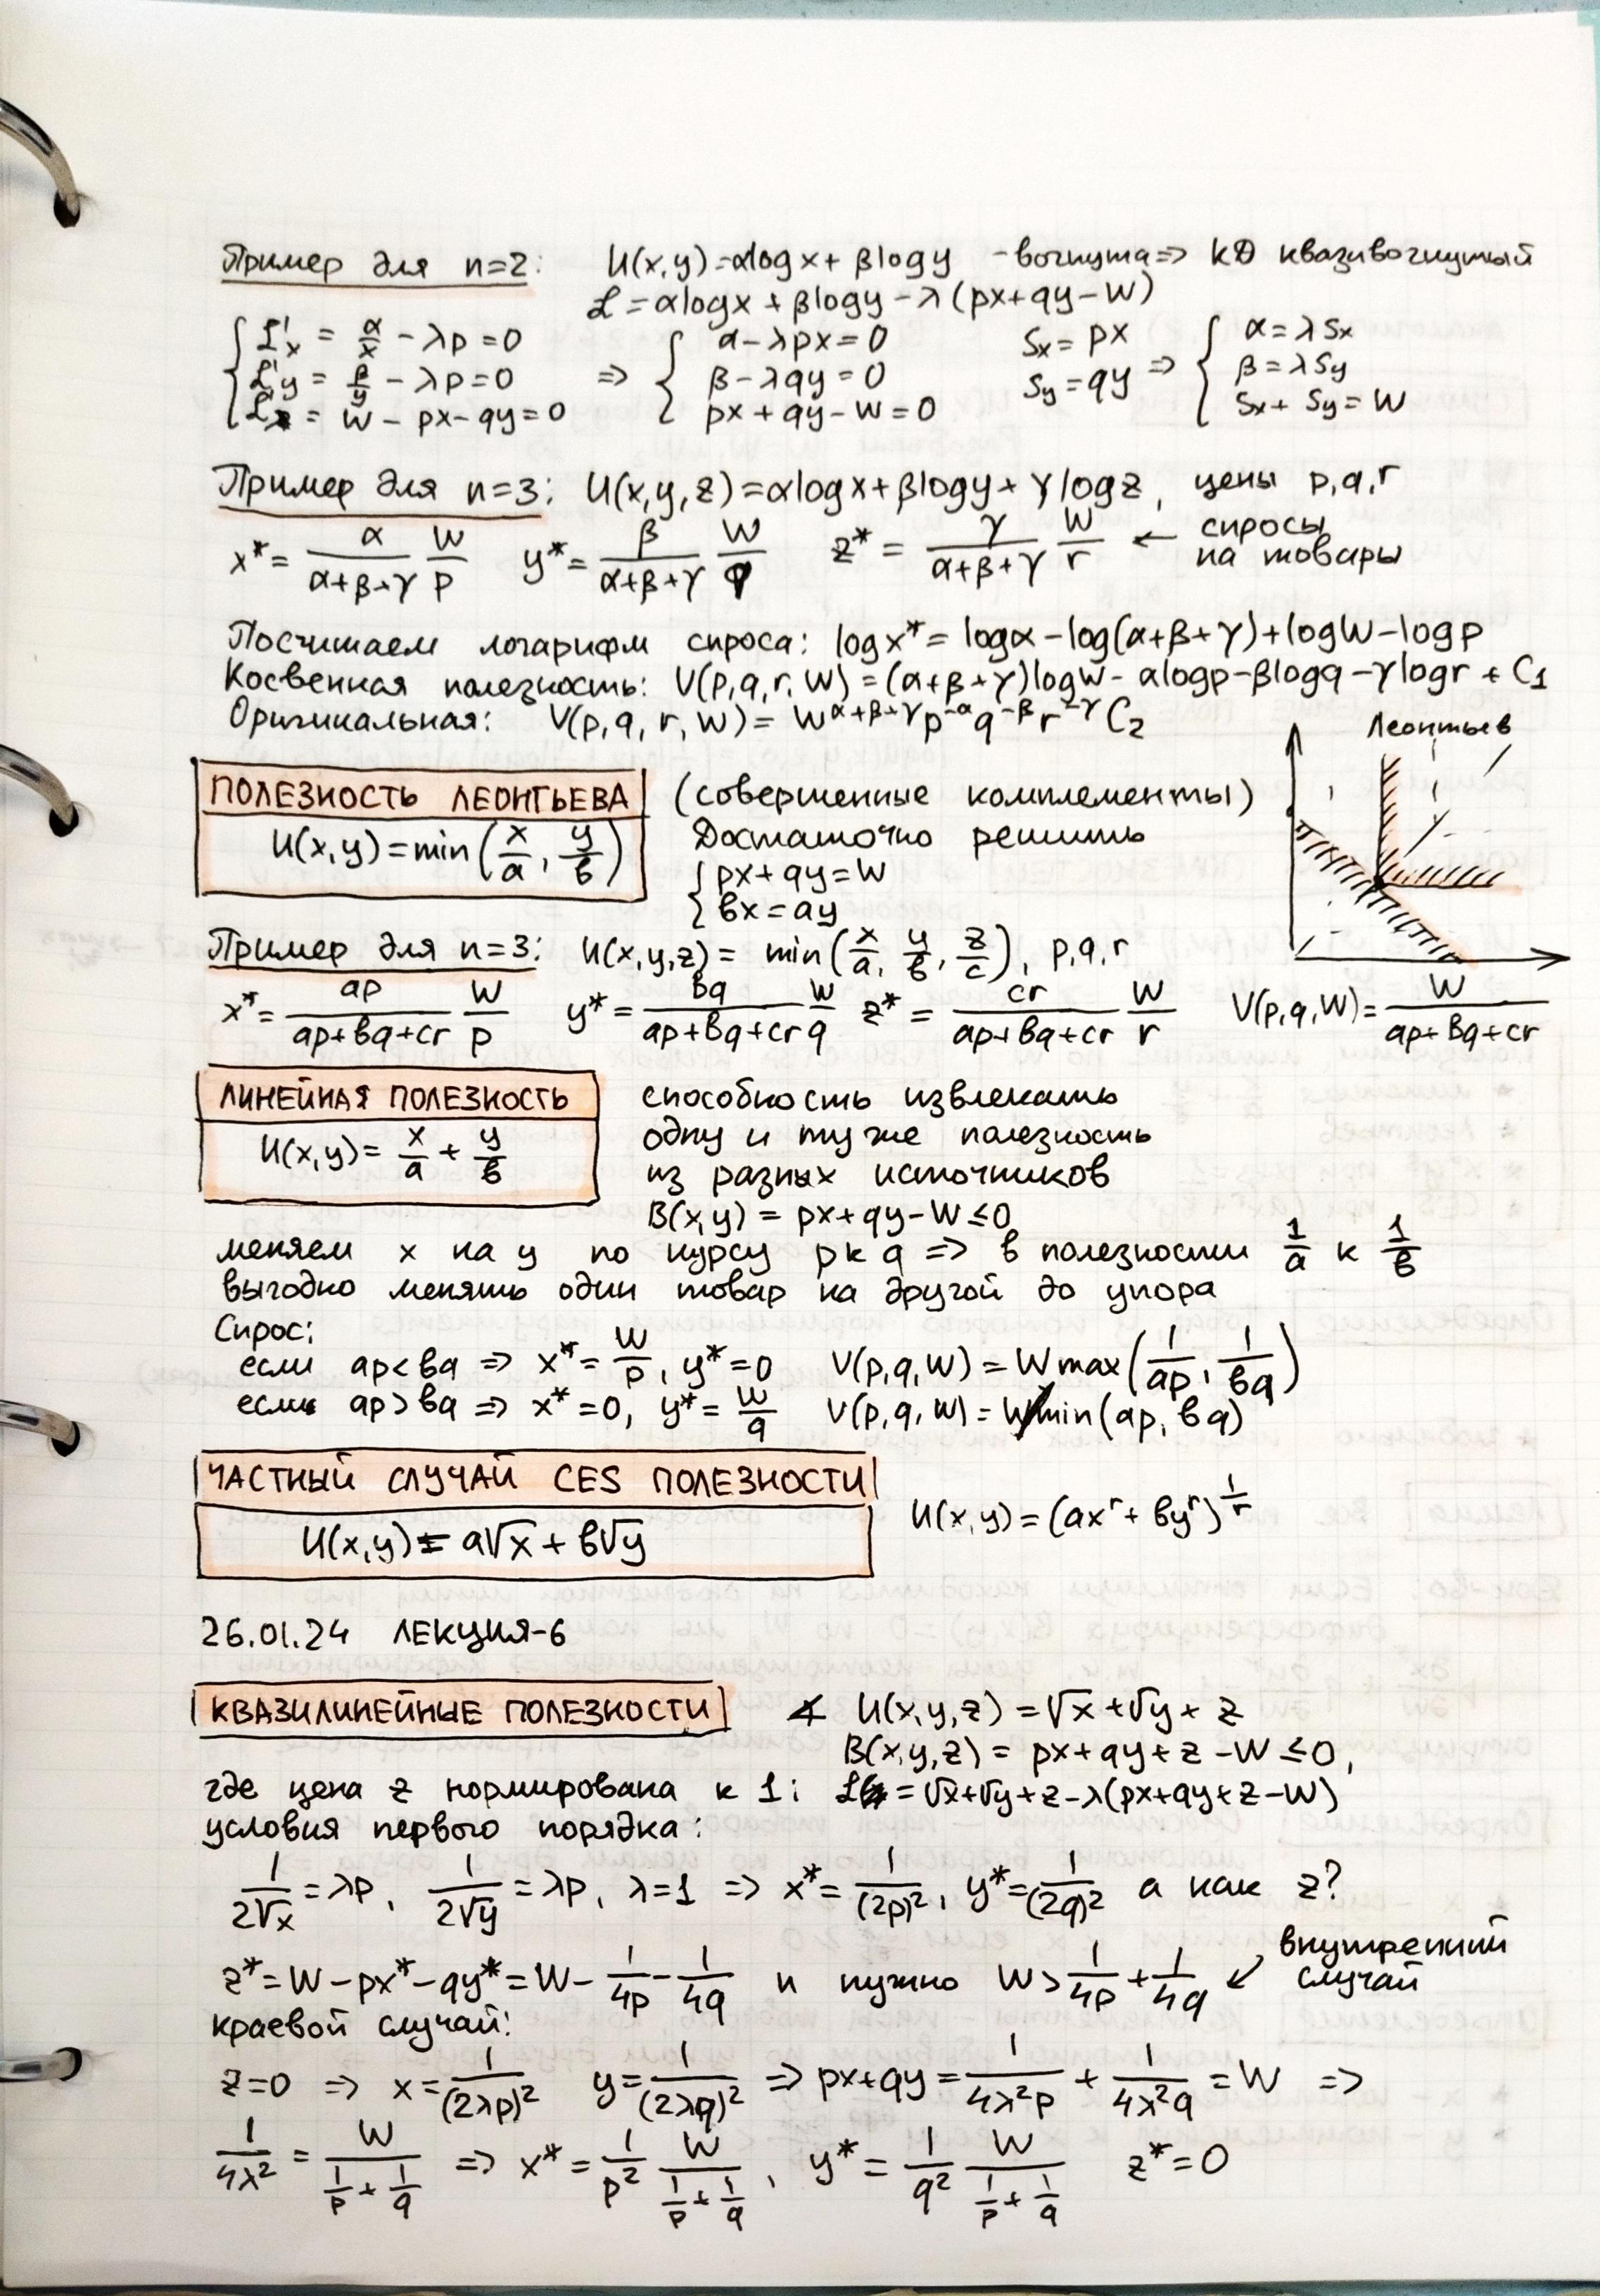 Пример для n=2: U(x,y)=αlogx + βlogy – вогнута => КД квазивогнутый
ℒ = αlogx + βlogy – λ(px+qy–W)
{ ℒ'x = α/x – λp = 0 => { α–λpx=0 Sx = px => { α = λSx
ℒ'y = β/y – λp=0 β–λqy=0 Sy = qy β = λSy
ℒ'λ = W – px – qy = 0 px + qy – W = 0 Sx + Sy = W
Пример для n=3: U(x,y,z)=αlogx+βlogy+γlogz, цены p,q,r
x* = α/(α+β+γ) W/p y* = β/(α+β+γ) W/q z* = γ/(α+β+γ) W/r ← спросы
на товары
Посчитаем логарифм спроса: logx* = logα – log(α+β+γ)+logW–logp
Косвенная полезность: V(p,q,r,W) = (α+β+γ)logW – αlogp–βlogq–γlogr + C₁
Оригинальная: V(p,q,r,W) = W^(α+β+γ) p^(-α) q^(-β) r^(-γ) C₂
Леонтьев
ПОЛЕЗНОСТЬ ЛЕОНТЬЕВА (совершенные комплементы)
U(x,y)=min(x/a, y/в) Достаточно решить
{ px+qy=W
вx = ay
Пример для n=3: U(x,y,z) = min(x/a, y/в, z/c), p,q,r
x* = ap/(ap+вq+cr) W/p y* = вq/(ap+вq+cr) W/q z* = cr/(ap+вq+cr) W/r V(p,q,W) = W/(ap+вq+cr)
ЛИНЕЙНАЯ ПОЛЕЗНОСТЬ способность извлекать
U(x,y) = x/a + y/в одну и ту же полезность
из разных источников
B(x,y) = px+qy–W ≤0
меняем x на y по курсу p к q => в полезности 1/a к 1/в
выгодно менять один товар на другой до упора
Спрос:
если ap<вq => x* = W/p, y*=0 V(p,q,W) = W max(1/ap, 1/вq)
если ap>вq => x*=0, y* = W/q V(p,q,W) = W/min(ap, вq)
ЧАСТНЫЙ СЛУЧАЙ CES ПОЛЕЗНОСТИ
U(x,y) = a√x + в√y U(x,y) = (ax^r + вy^r)^(1/r)
26.01.24 ЛЕКЦИЯ-6
КВАЗИЛИНЕЙНЫЕ ПОЛЕЗНОСТИ ∢ U(x,y,z) = √x + √y + z
B(x,y,z) = px+qy+z –W ≤0,
где цена z нормирована к 1: ℒ = √x+√y+z–λ(px+qy+z–W)
условия первого порядка:
1/(2√x) = λp, 1/(2√y) = λp, λ=1 => x* = 1/(2p)², y* = 1/(2q)² а как z?
z* = W – px* – qy* = W – 1/4p – 1/4q и нужно W > 1/4p + 1/4q ↙ внутренний
случай
краевой случай:
z=0 => x = 1/(2λp)² y = 1/(2λq)² => px+qy = 1/(4λ²p) + 1/(4λ²q) = W =>
1/(4λ²) = W/(1/p + 1/q) => x* = 1/p² W/(1/p + 1/q), y* = 1/q² W/(1/p + 1/q) z*=0